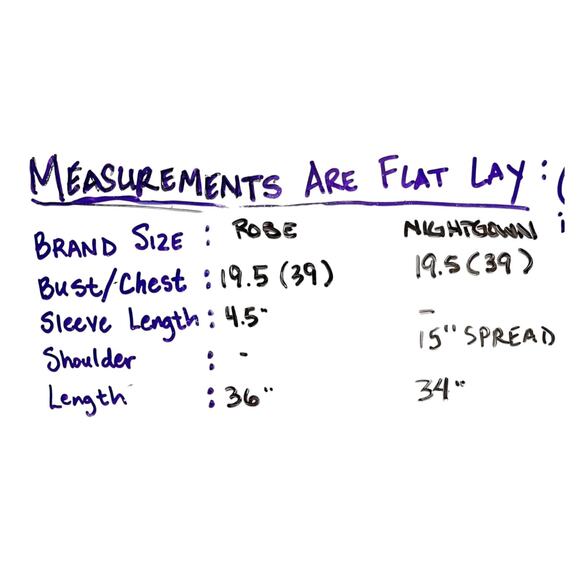 MEASUREMENTS ARE FLAT LAY : (
BRAND SIZE : ROBE NIGHTGOWN
Bust/Chest : 19.5 (39) 19.5 (39)
Sleeve Length : 4.5" -
Shoulder : - 15" SPREAD
Length : 36" 34"